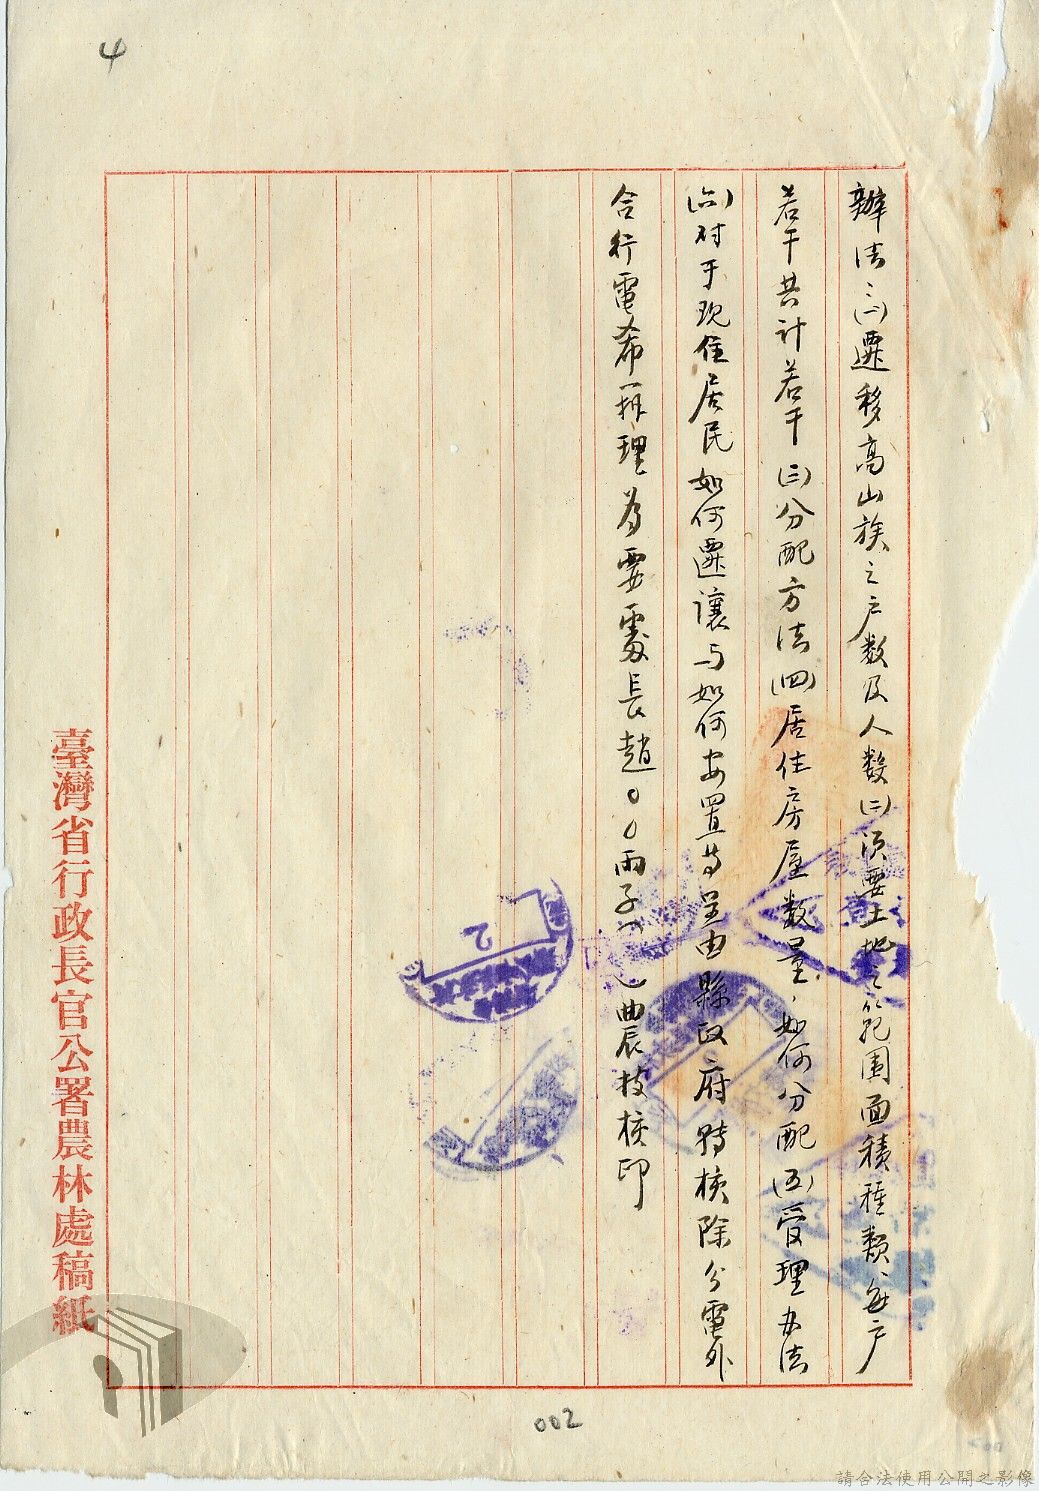 4
辦法：(一)遷移高山族之户数及人数(二)須要土地之範圍面積種類、每户
若干共計若干(三)分配方法(四)居住房屋数量、如何分配(五)受理办法
(六)对于现住居民如何遷讓与如何安置等呈由縣政府轉核除分電外
合行電希辦理為要處長趙○○丙子(  )農技核印
臺灣省行政長官公署農林處稿紙
乙
002
請合法使用公開之影像